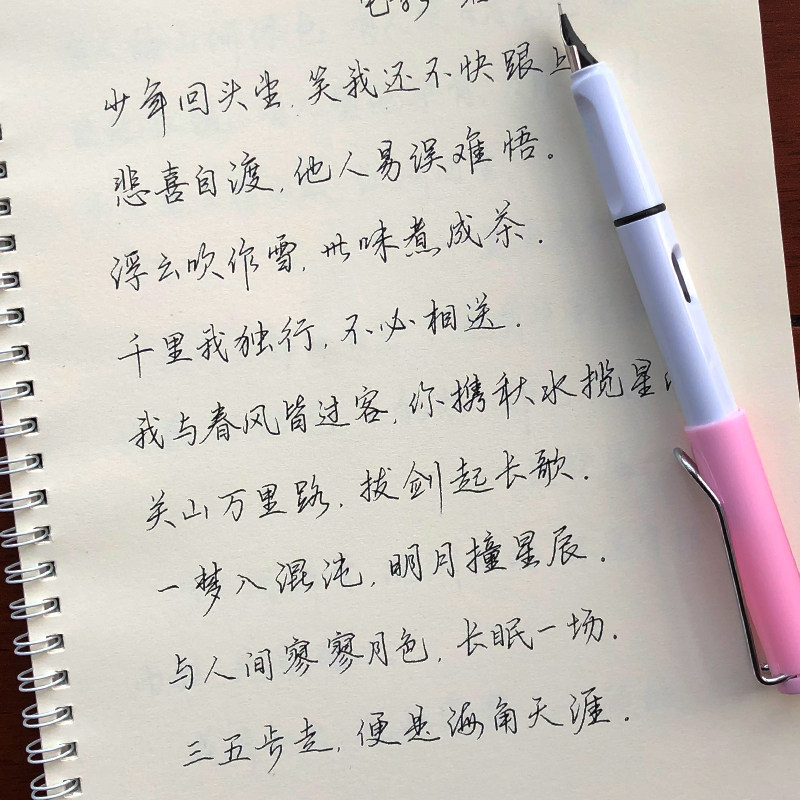 少年回头望,笑我还不快跟上
悲喜自渡,他人易误难悟。
浮云吹作雪,世味煮成茶.
千里我独行,不必相送.
我与春风皆过客,你携秋水揽星
关山万里路,拔剑起长歌.
一梦入混沌,明月撞星辰.
与人间寥寥月色,长眠一场.
三五步走,便是海角天涯.